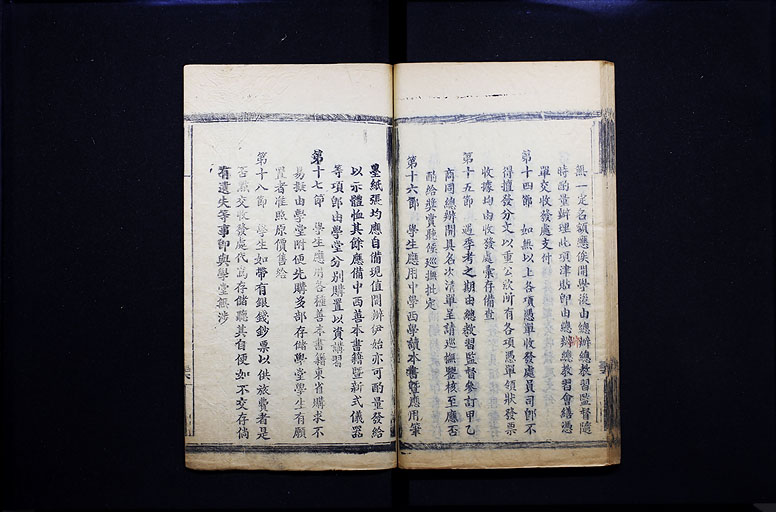 無一定名額應俟開學後由總辦總教習監督隨
時酌量辦理此項津貼卽由總辦總教習會繕憑
單交收發處支付
第十四節 如無以上各項憑單收發處員司卽不
得擅發分文以重公欵所有各項憑單領狀發票
收據均由收發處彙存備查
第十五節 遇季考之期由總教習監督參訂甲乙
商同總辦開具名次清單呈請巡撫鑒核至應否
酌給獎賞聽候巡撫批定
第十六節 學生應用中學西學讀本書暨應用筆
墨紙張均應自備現值開辦伊始亦可酌量發給
以示體恤其餘應備中西善本書籍暨新式儀器
等項卽由學堂分別購置以資講習
第十七節 學生應用各種善本書籍東省購求不
易擬由學堂附便先購多部存儲學堂學生有願
置者准照原價售給
第十八節 學生如帶有銀錢鈔票以供旅費者是
否願交收發處代為存儲聽其自便如不交存倘
有遺失等事卽與學堂無涉